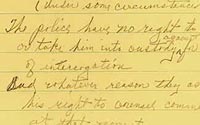 (Under some circumstances
The police have no right to
or take him into custody for
against
of interrogation
And whatever reason they
his right to counsel comm
at that moment